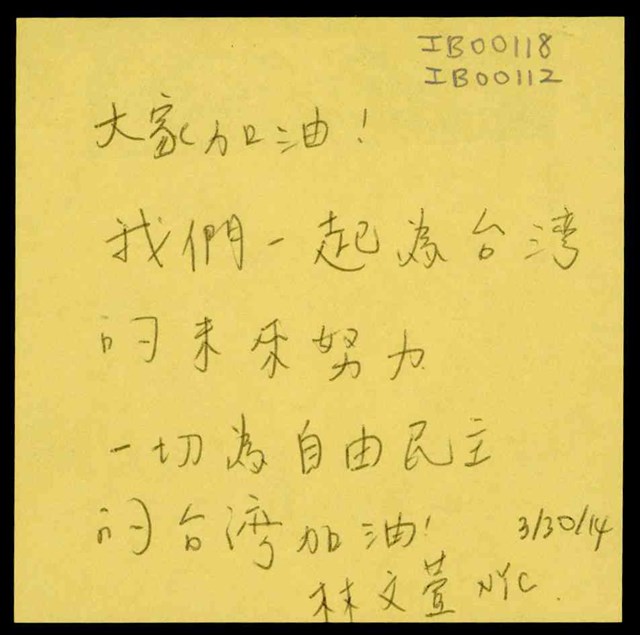 IB00118
IB00112
大家加油!
我們一起為台湾
的未來努力
一切為自由民主
的台湾加油! 3/30/14
林文萱 NYC.